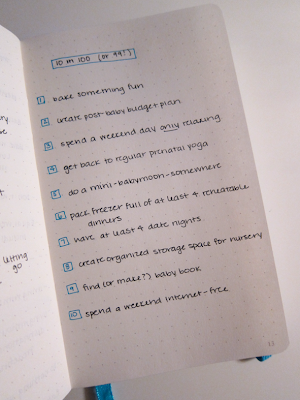 10 in 100 (or 99?)
1. bake something fun
2. create post-baby budget plan
3. spend a weekend day only relaxing
4. get back to regular prenatal yoga
5. do a mini-babymoon-somewhere
6. pack freezer full of at least 4 reheatable
dinners
7. have at least 4 date nights
8. create organized storage space for nursery
9. find (or make?) baby book
10. spend a weekend internet-free
go